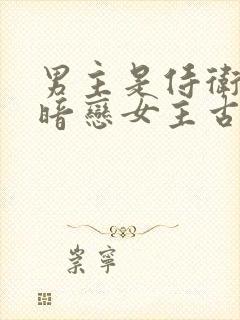 男主是侍衛
暗戀女主古
崇寧